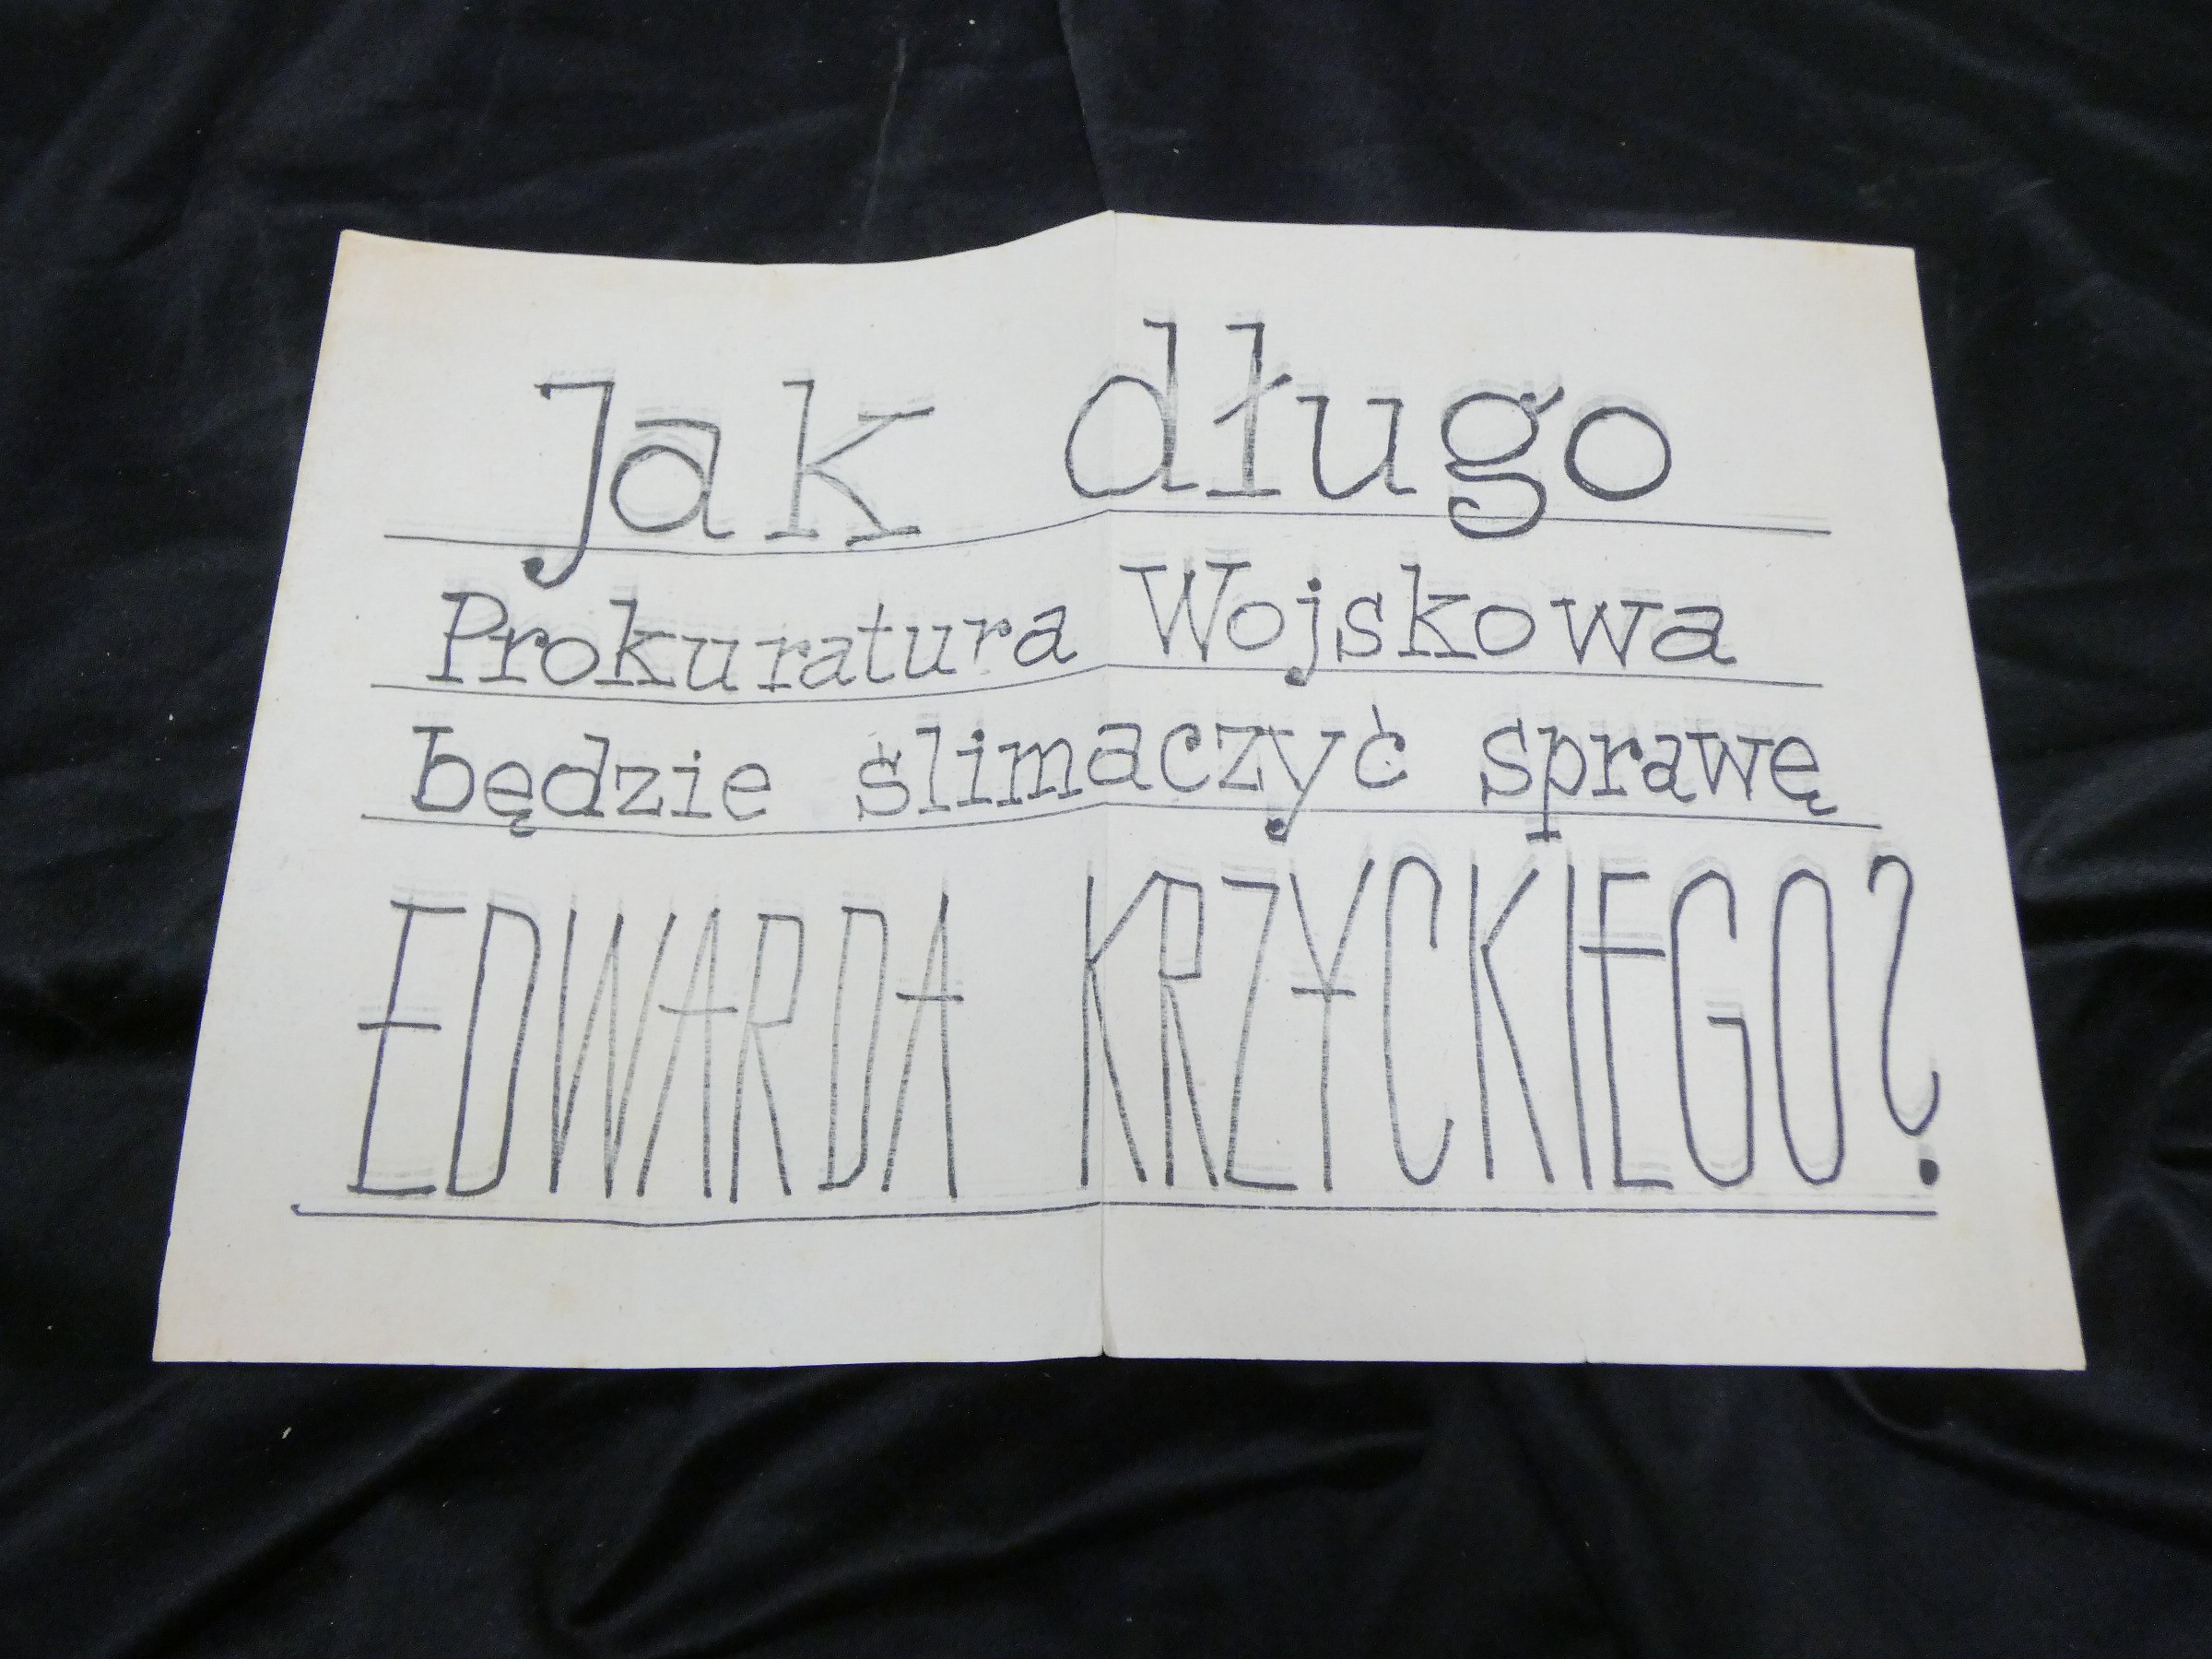 Jak długo
Prokuratura Wojskowa
będzie ślimaczyć sprawę
EDWARDA KRZYCKIEGO?